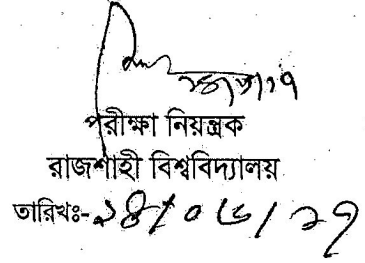 পরীক্ষা নিয়ন্ত্রক
রাজশাহী বিশ্ববিদ্যালয়
তারিখঃ- ১৪/০৬/১৭